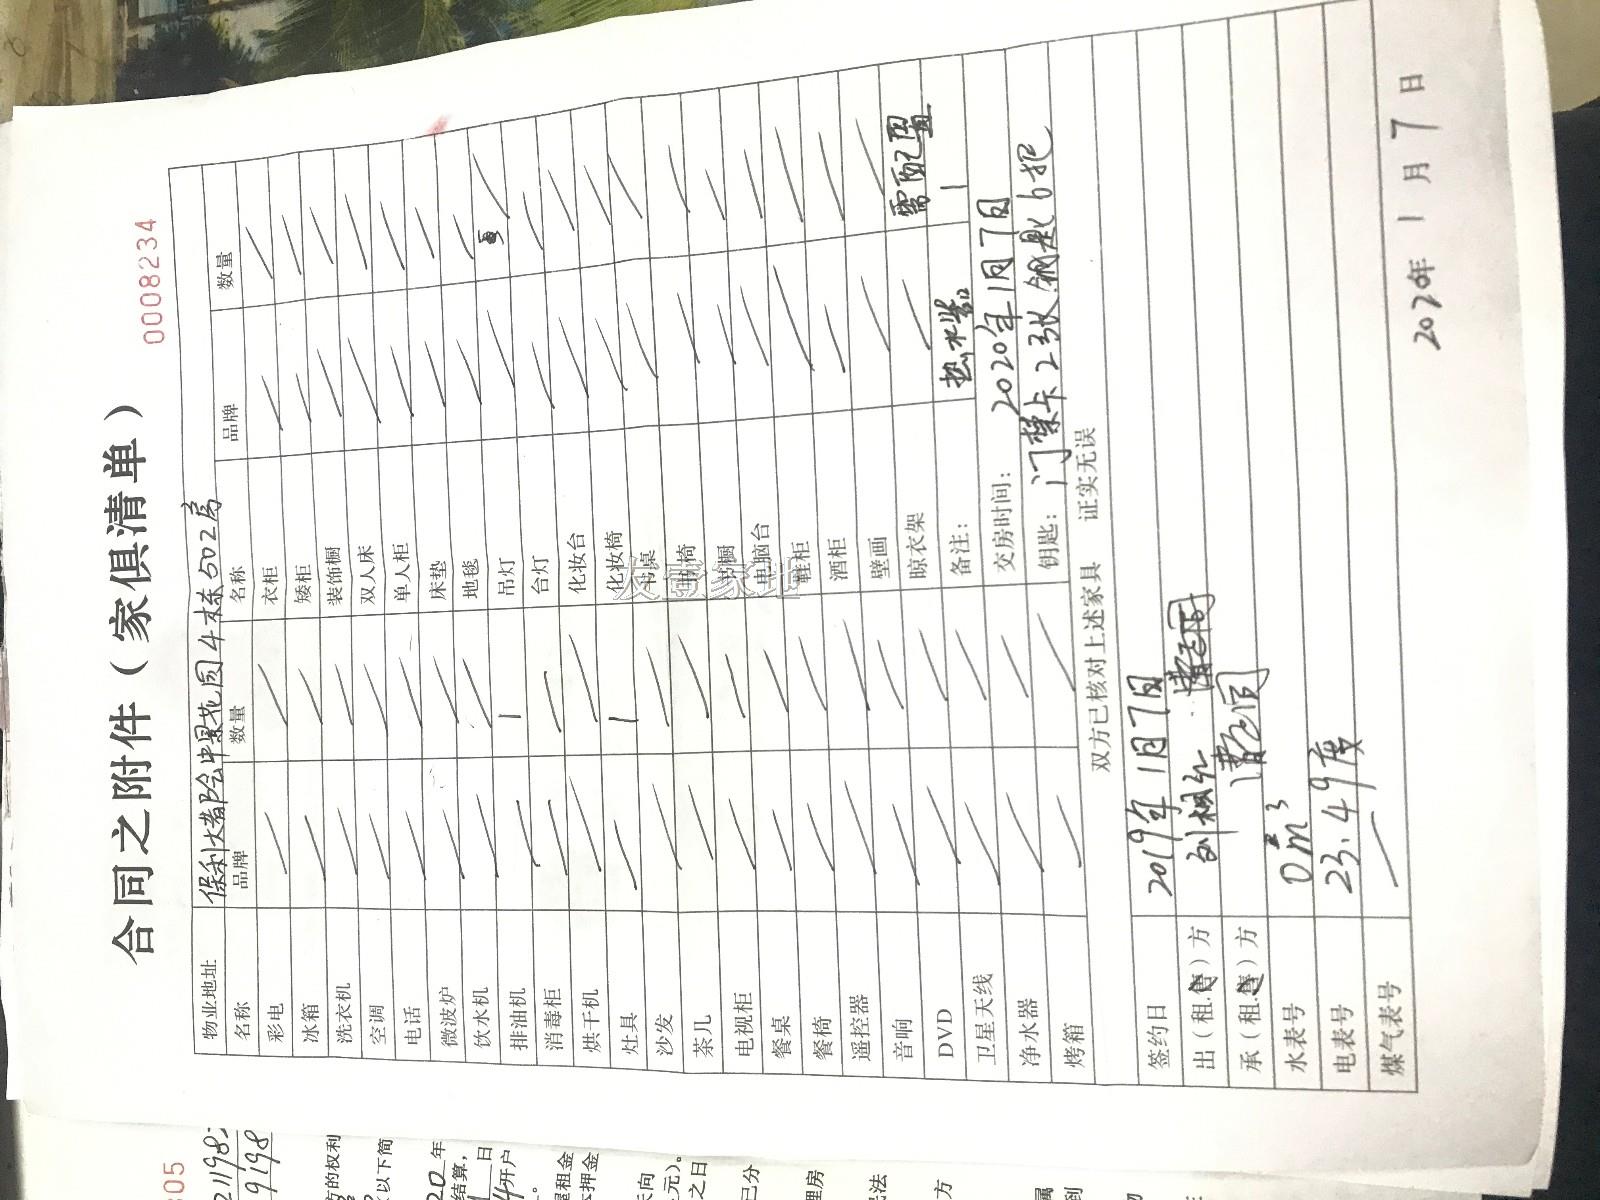 合同之附件（家俱清单）
0008234
物业地址 保利大都会中景花园4栋502房
名称 品牌 数量 名称 品牌 数量
彩电 衣柜
冰箱 矮柜
洗衣机 装饰橱
空调 双人床
电话 单人柜
微波炉 床垫
饮水机 地毯
排油机 1 吊灯
消毒柜 台灯
烘干机 化妆台
灶具 1 化妆椅
沙发 书桌
茶几 书椅
电视柜 书橱
餐桌 电脑台
餐椅 鞋柜
遥控器 酒柜
音响 壁画
DVD 晾衣架 需配置
卫星天线 备注： 热水器 1
净水器 交房时间： 2020年1月7日
烤箱 钥匙： 门禁卡2张 钥匙6把
双方已核对上述家具 证实无误
签约日 2019年1月7日
出（租.售）方
承（租.售）方
水表号 0m³
电表号 23.49度
煤气表号
2020年1月7日
05
21198
9198
方的权利
以下简
20年
结算，
日
开户
屋租金
押金
元）。
之日
已分
理房
民法
方
属
到